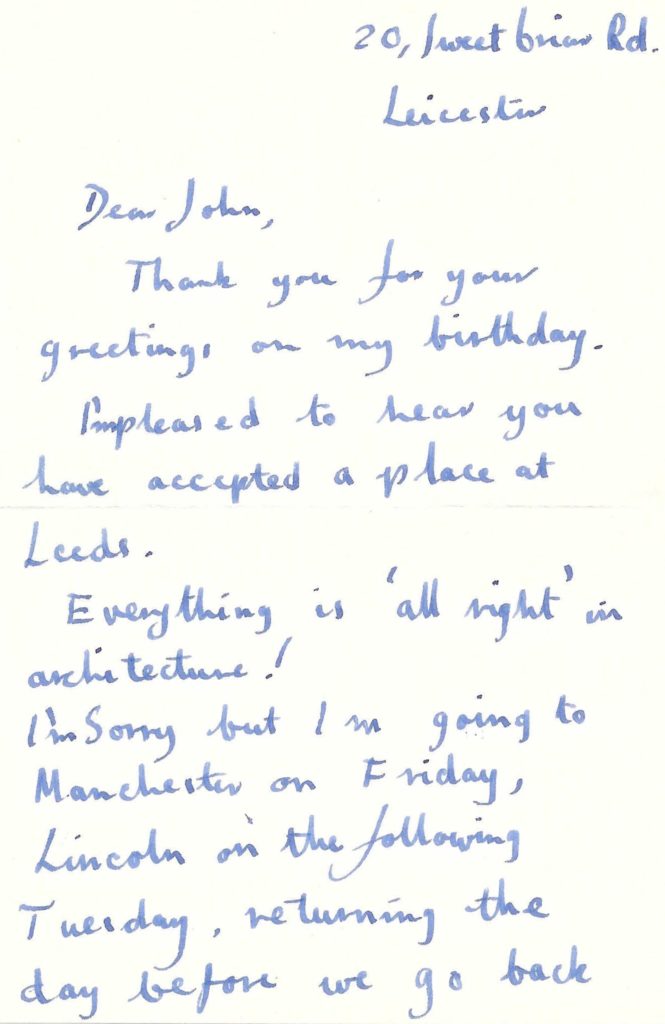 20, Sweet briar Rd.
Leicester
Dear John,
Thank you for your
greetings on my birthday.
I'm pleased to hear you
have accepted a place at
Leeds.
Everything is 'all right' in
architecture!
I'm Sorry but I'm going to
Manchester on Friday,
Lincoln on the following
Tuesday, returning the
day before we go back